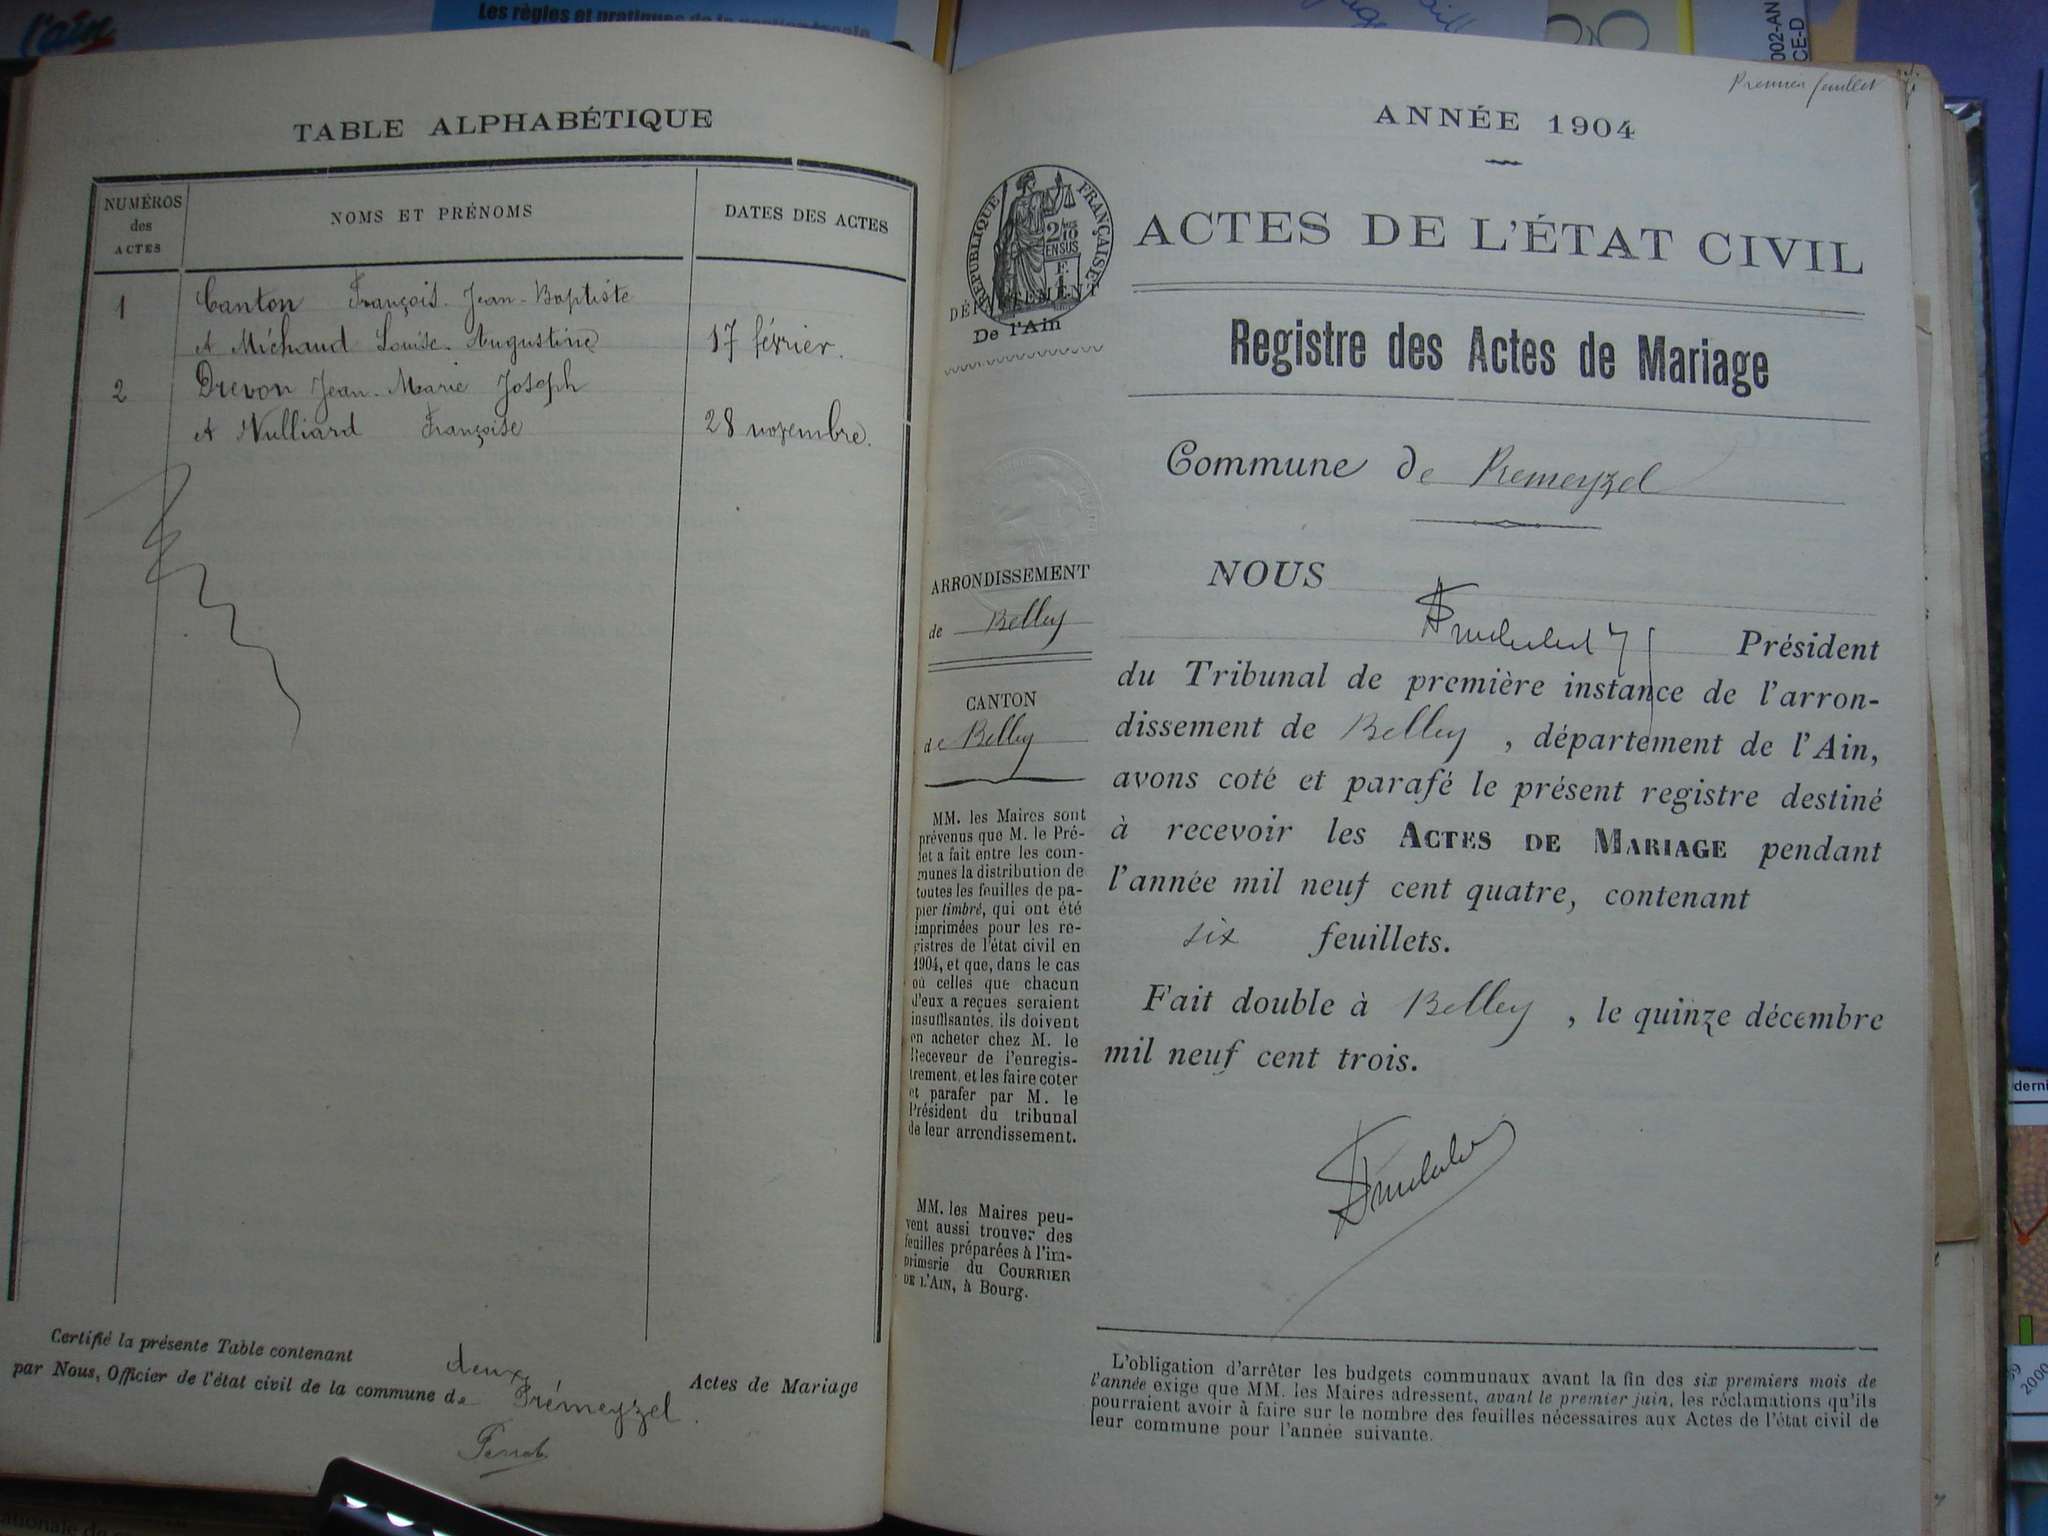 l'ain
Les règles et pratiques de la
002-AN
CE-D
TABLE ALPHABÉTIQUE
NUMÉROS
des
ACTES
NOMS ET PRÉNOMS
DATES DES ACTES
1 Canton François Jean-Baptiste
et Michaud Louise Augustine 17 février.
2 Drevon Jean-Marie Joseph
et Nulliard Françoise 28 novembre.
Certifié la présente Table contenant deux Actes de Mariage
par Nous, Officier de l'état civil de la commune de Prémeyzel.
Premier feuillet
ANNÉE 1904
RÉPUBLIQUE FRANÇAISE
DÉPARTEMENT
De l'Ain
ACTES DE L'ÉTAT CIVIL
Registre des Actes de Mariage
Commune de Premeyzel
ARRONDISSEMENT
de Belley
CANTON
de Belley
MM. les Maires sont
prévenus que M. le Pré-
fet a fait entre les com-
munes la distribution de
toutes les feuilles de pa-
pier timbré, qui ont été
imprimées pour les re-
gistres de l'état civil en
1904, et que, dans le cas
où celles que chacun
d'eux a reçues seraient
insuffisantes, ils doivent
en acheter chez M. le
Receveur de l'enregis-
trement, et les faire coter
et parafer par M. le
Président du tribunal
de leur arrondissement.
MM. les Maires peu-
vent aussi trouver des
feuilles préparées à l'im-
primerie du COURRIER
DE L'AIN, à Bourg.
NOUS
Président
du Tribunal de première instance de l'arron-
dissement de Belley, département de l'Ain,
avons coté et parafé le présent registre destiné
à recevoir les ACTES DE MARIAGE pendant
l'année mil neuf cent quatre, contenant
six feuillets.
Fait double à Belley, le quinze décembre
mil neuf cent trois.
L'obligation d'arrêter les budgets communaux avant la fin des six premiers mois de
l'année exige que MM. les Maires adressent, avant le premier juin, les réclamations qu'ils
pourraient avoir à faire sur le nombre des feuilles nécessaires aux Actes de l'état civil de
leur commune pour l'année suivante.
derni
2000